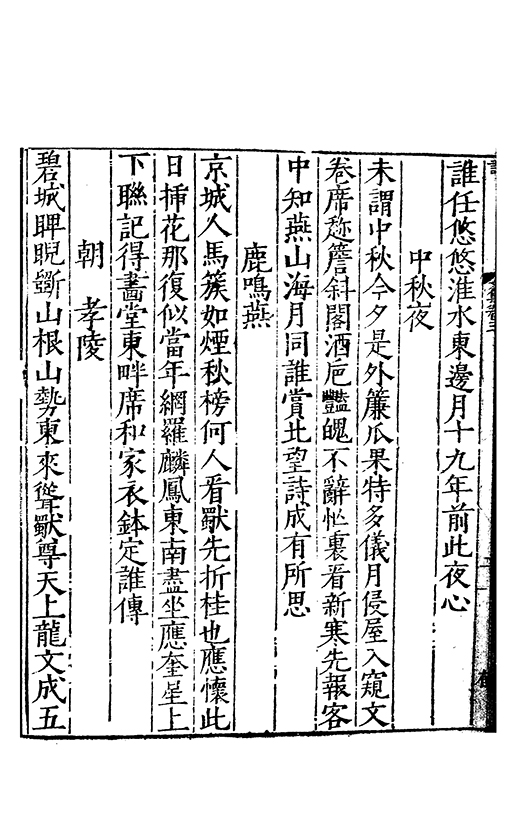 誰任悠悠淮水東邊月十九年前此夜心
中秋夜
未謂中秋今夕是外簾瓜果特多儀月侵屋入窺文
卷席趂簷斜閣酒巵豔魄不辭忙裏看新寒先報客
中知燕山海月同誰賞北望詩成有所思
鹿鳴燕
京城人馬簇如煙秋榜何人看獸先折桂也應懷此
日揷花那復似當年網羅麟鳳東南盡坐應奎星上
下聯記得畫堂東畔席和家衣鉢定誰傳
朝 孝陵
碧城睥睨斷山根山勢東來聳獸尊天上龍文成五